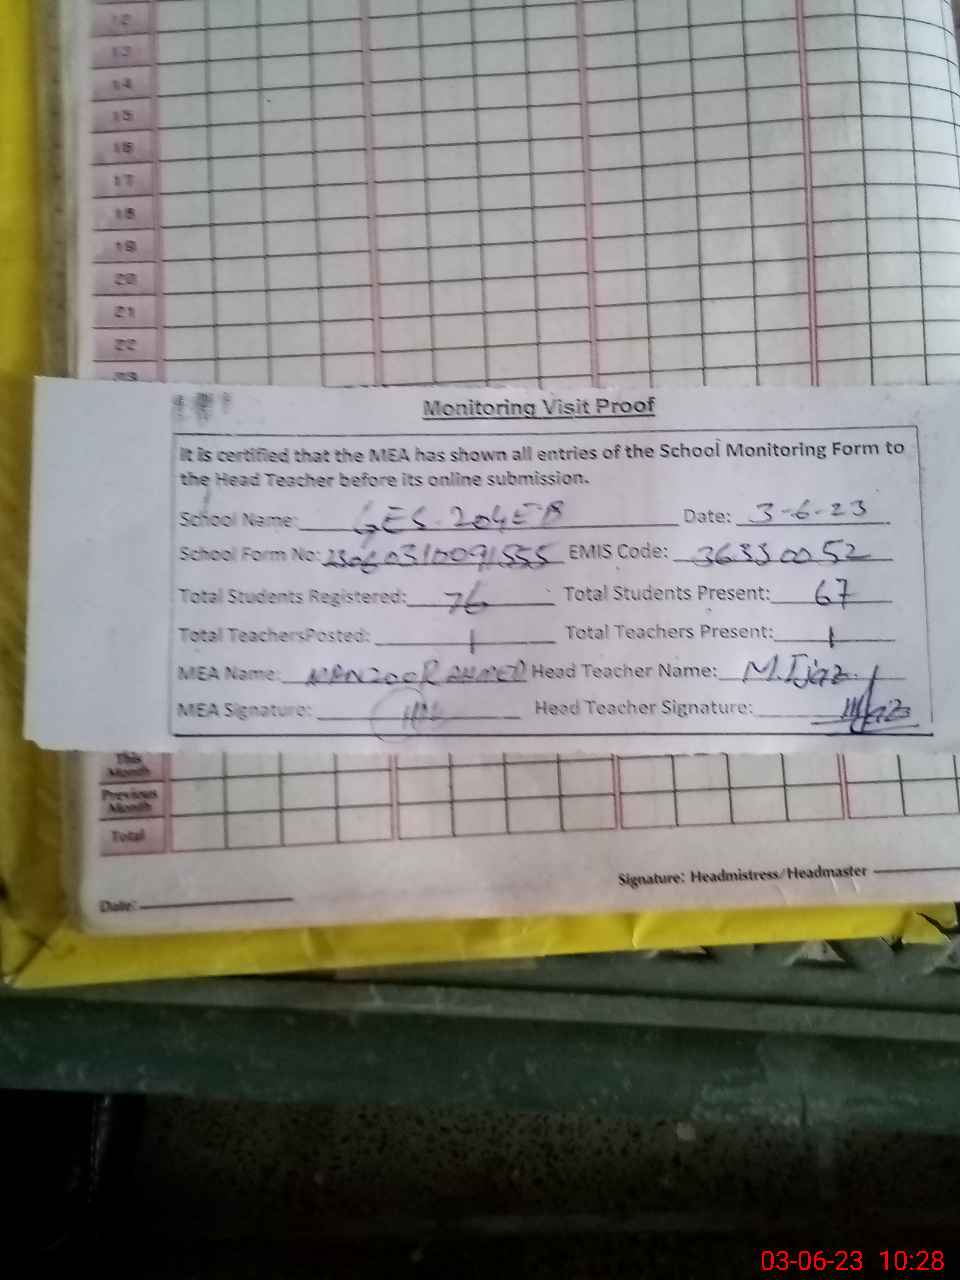 12
13
14
15
16
17
18
19
20
21
22
23
Monitoring Visit Proof
It is certified that the MEA has shown all entries of the School Monitoring Form to
the Head Teacher before its online submission.
School Name: GES-204EB Date: 3-6-23
School Form No: EMIS Code: 36330052
Total Students Registered: 76 Total Students Present: 67
Total TeachersPosted: 1 Total Teachers Present: 1
MEA Name: MANZOOR AHMED Head Teacher Name: M.Ijaz
MEA Signature: Head Teacher Signature:
This
Month
Previous
Month
Total
Signature: Headmistress/Headmaster
Date:
03-06-23 10:28